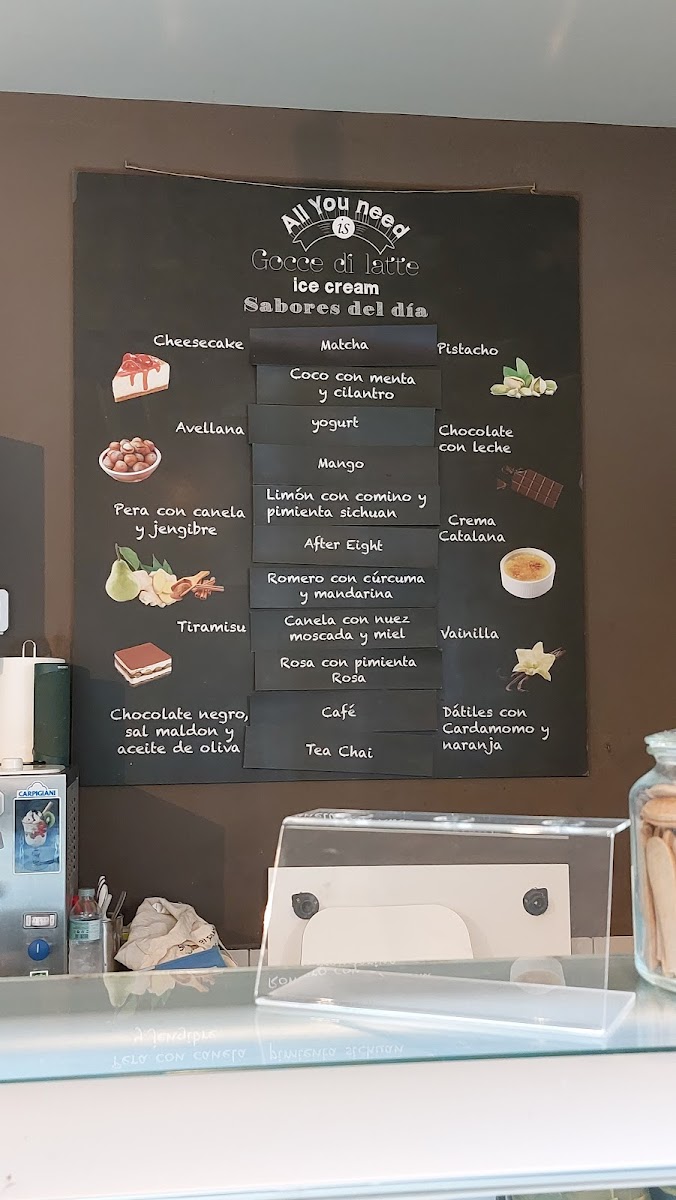 All You need
is
Gocce di latte
ice cream
Sabores del día
Cheesecake
Avellana
Pera con canela
y jengibre
Tiramisu
Chocolate negro,
sal maldon y
aceite de oliva
Matcha
Coco con menta
y cilantro
yogurt
Mango
Limón con comino y
pimienta sichuan
After Eight
Romero con cúrcuma
y mandarina
Canela con nuez
moscada y miel
Rosa con pimienta
Rosa
Café
Tea Chai
Pistacho
Chocolate
con leche
Crema
Catalana
Vainilla
Dátiles con
Cardamomo y
naranja
CARPIGIANI